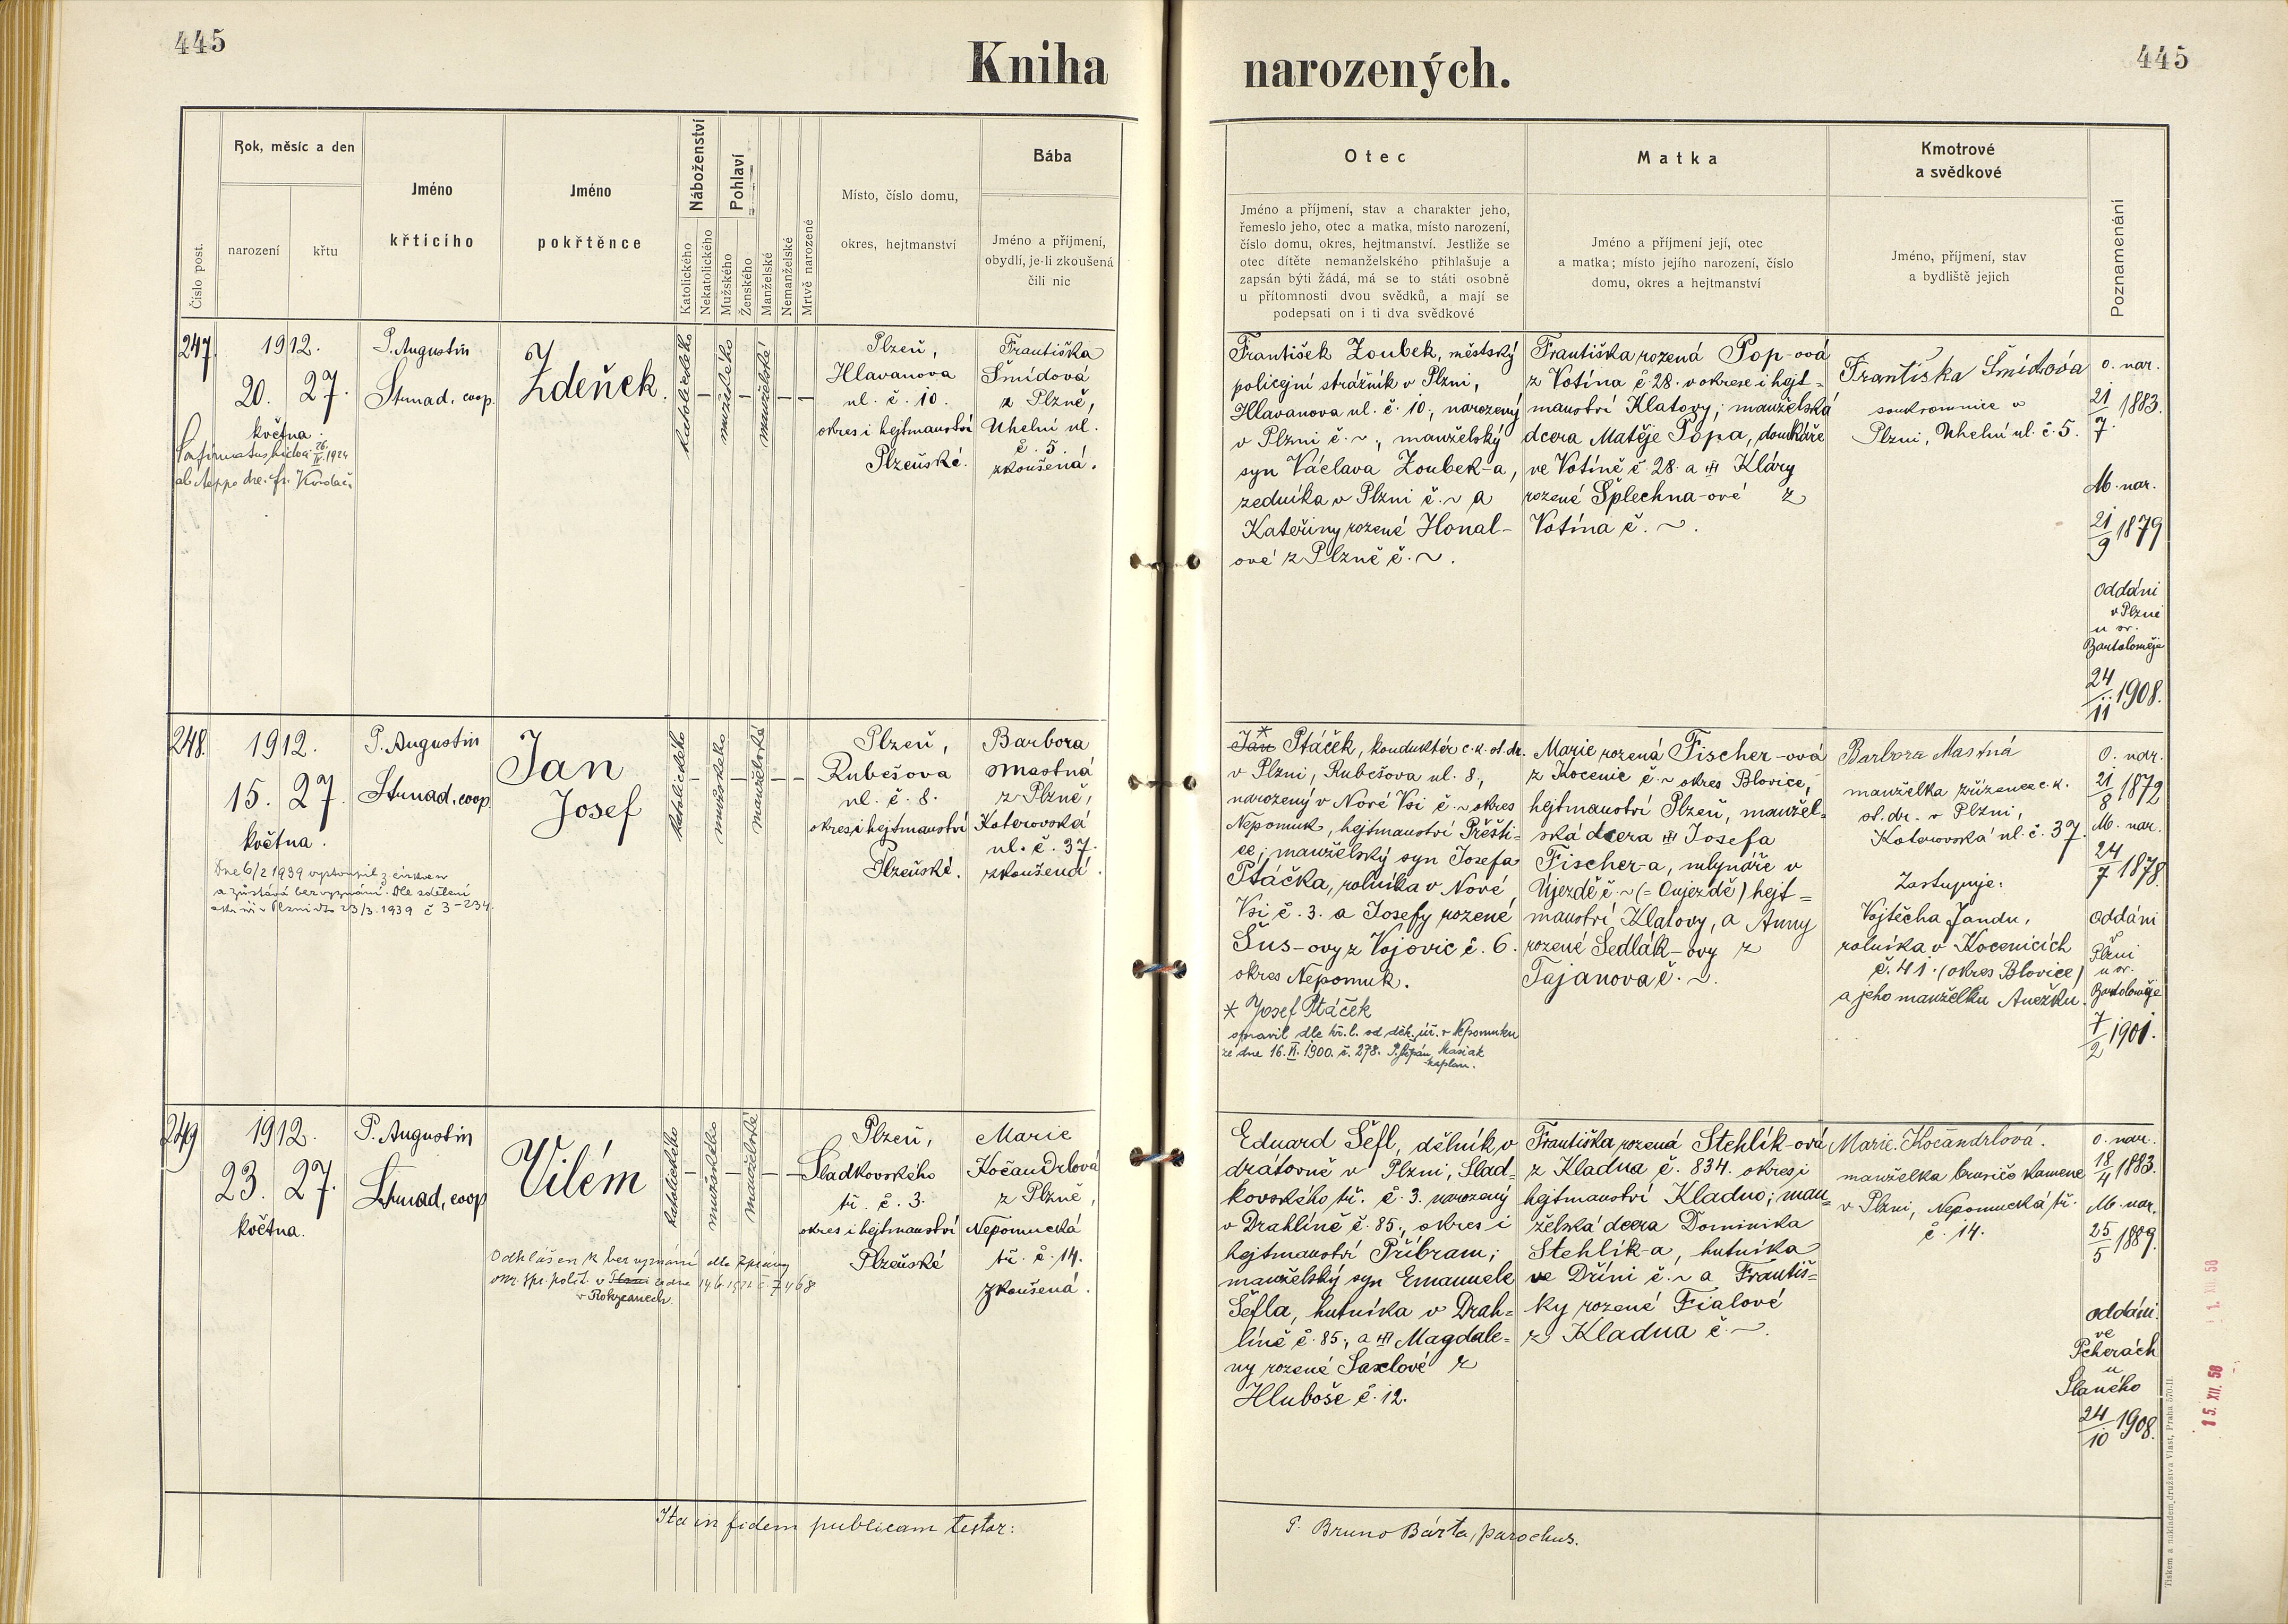 445
Kniha
narozených.
445
Číslo post.
Rok, měsíc a den
narození
křtu
Jméno
křtícího
Jméno
pokřtěnce
Náboženství
Katolického
Nekatolického
Pohlaví
Mužského
Ženského
Manželské
Nemanželské
Mrtvě narozené
Místo, číslo domu,
okres, hejtmanství
Bába
Jméno a příjmení,
obydlí, je-li zkoušená
čili nic
Otec
Jméno a příjmení, stav a charakter jeho,
řemeslo jeho, otec a matka, místo narození,
číslo domu, okres, hejtmanství. Jestliže se
otec dítěte nemanželského přihlašuje a
zapsán býti žádá, má se to státi osobně
u přítomnosti dvou svědků, a mají se
podepsati on i ti dva svědkové
Matka
Jméno a příjmení její, otec
a matka; místo jejího narození, číslo
domu, okres a hejtmanství
Kmotrové
a svědkové
Jméno, příjmení, stav
a bydliště jejich
Poznamenání
247.
1912.
20. 27.
května.
P. Augustin
Strnad, coop.
Zdeněk.
katolického
mužského
manželské
Plzeň,
Hlavanova
ul. č. 10.
okres i hejtmanství
Plzeňské.
Františka
Šmídová
z Plzně,
Uhelní ul.
č. 5.
zkoušená.
František Zoubek, městský
policejní strážník v Plzni,
Hlavanova ul. č. 10., narozený
v Plzni č. ~, manželský
syn Václava Zoubek-a,
zedníka v Plzni č. ~ a
Kateřiny rozené Honal-
ové z Plzně č. ~.
Františka rozená Pop-ová
z Votína č. 28. v okrese i hejt-
manství Klatovy; manželská
dcera Matěje Popa, domkáře
ve Votíně č. 28. a Kláry
rozené Šplechna-ové z
Votína č. ~.
Františka Šmídová
soukromnice v
Plzni, Uhelní ul. č. 5.
O. nar.
21/7 1883.
M. nar.
21/9 1879
Oddáni
v Plzni
u sv.
Bartoloměje
24/11 1908.
248.
1912.
15. 27.
května.
Dne 6/2 1939 vystoupil z církve
a zůstává bez vyznání. Dle sdělení
v Plzni dto 23/3. 1939 č 3-234.
P. Augustin
Strnad, coop.
Jan
Josef
katolického
mužského
manželské
Plzeň,
Rubešova
ul. č. 8.
okres i hejtmanství
Plzeňské.
Barbora
Mastná
z Plzně,
Koterovská
ul. č. 37.
zkoušená.
Jan Ptáček, konduktér c. k. st. dr.
v Plzni, Rubešova ul. 8.,
narozený v Nové Vsi č. ~ okres
Nepomuk, hejtmanství Přešti-
ce; manželský syn Josefa
Ptáčka, rolníka v Nové
Vsi č. 3. a Josefy rozené
Šus-ovy z Vojovic č. 6.
okres Nepomuk.
* Josef Ptáček
opravil dle kř. l. od děk. úř. v Nepomuku
ze dne 16. VI. 1900. č. 278. P. Štěpán Masiak
kaplan.
Marie rozená Fischer-ová
z Kocenic č. ~ okres Blovice,
hejtmanství Plzeň, manžel-
ská dcera Josefa
Fischer-a, mlynáře v
Újezdě č. ~ (= Oujezdě) hejt=
manství Klatovy, a Anny
rozené Sedlák-ovy z
Tajanova č. ~.
Barbora Mastná
manželka zřízence c. k.
st. dr. v Plzni,
Koterovská ul. č. 37.
Zastupuje:
Vojtěcha Jandu,
rolníka v Kocenicích
č. 41. (okres Blovice)
a jeho manželku Anežku.
O. nar.
21/8 1872
M. nar.
24/7 1878.
Oddáni
Plzni
u sv.
Bartoloměje
7/2 1901.
249
1912.
23. 27.
května.
P. Augustin
Strnad, coop
Vilém
Odhlášen k bez vyznání dle zprávy
okr. spr. polit. v
v Rokycanech
katolického
mužského
manželské
Plzeň,
Sladkovského
tř. č. 3.
okres i hejtmanství
Plzeňské
Marie
Kočandrlová
z Plzně,
Nepomucká
tř. č. 14.
zkoušená.
Eduard Šefl, dělník v
drátovně v Plzni, Slad=
kovského tř. č. 3. narozený
v Drahlíně č. 85., okres i
hejtmanství Příbram;
manželský syn Emanuele
Šefla, hutníka v Drah=
líně č. 85., a Magdale-
ny rozené Saxlové z
Hluboše č. 12.
Františka rozená Stehlík-ová
z Kladna č. 834. okres i
hejtmanství Kladno; man=
želská dcera Dominika
Stehlík-a, hutníka
ve Dříni č. ~ a Františ=
ky rozené Fialové
z Kladna č. ~.
Marie Kočandrlová.
manželka brusiče kamene
v Plzni, Nepomucká tř.
č. 14.
O. nar.
18/4 1883.
M. nar.
25/5 1889.
oddáni
ve
Pcherách
u
Slaného
24/10 1908.
15. XII. 58
Ita in fidem publicam testor:
P. Bruno Bárta, parochus.
Tiskem a nákladem družstva Vlast, Praha 570-II.